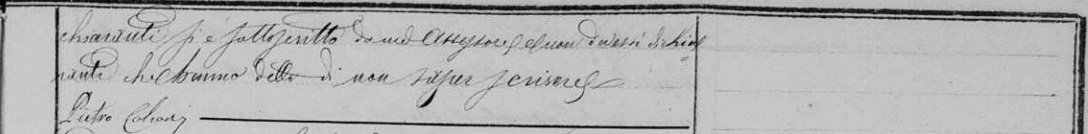 chiaranti si è sottoscritto da me Assessore e non da essi dichia
ranti che hanno detto di non saper scrivere
Pietro